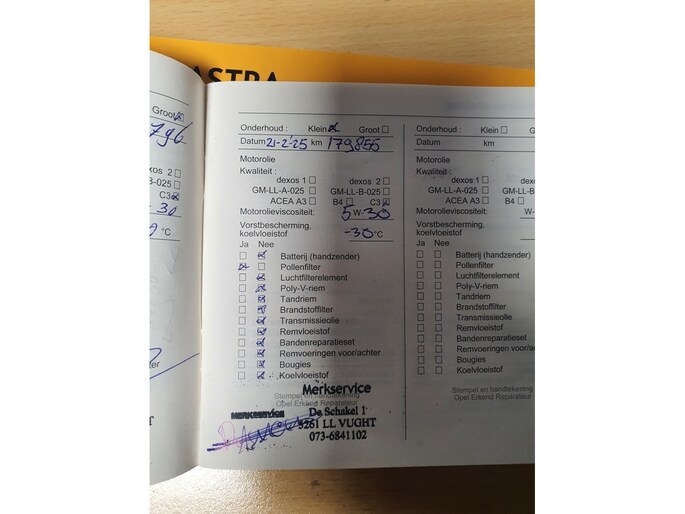 ASTRA
Groot
796
2
B-025
C3
- 30
°C
Onderhoud : Klein Groot
Datum 21-2-'25 km 179855
Motorolie
Kwaliteit :
dexos 1 dexos 2
GM-LL-A-025 GM-LL-B-025
ACEA A3 B4 C3
Motorolieviscositeit: 5 W-30
Vorstbescherming,
koelvloeistof -30 °C
Ja Nee
Batterij (handzender)
Pollenfilter
Luchtfilterelement
Poly-V-riem
Tandriem
Brandstoffilter
Transmissieolie
Remvloeistof
Bandenreparatieset
Remvoeringen voor/achter
Bougies
Koelvloeistof
Stempel en handtekening
Opel Erkend Reparateur
Merkservice
De Schakel 1
5261 LL VUGHT
073-6841102
MERKSERVICE
Onderhoud : Klein Groot
Datum km
Motorolie
Kwaliteit :
dexos 1
GM-LL-A-025 GM-
ACEA A3 B4
Motorolieviscositeit: W-
Vorstbescherming,
koelvloeistof
Ja Nee
Batterij (handzender)
Pollenfilter
Luchtfilterelement
Poly-V-riem
Tandriem
Brandstoffilter
Transmissieolie
Remvloeistof
Bandenreparatieset
Remvoeringen voor/achter
Bougies
Koelvloeistof
Stempel en handtekening
Opel Erkend Reparateur